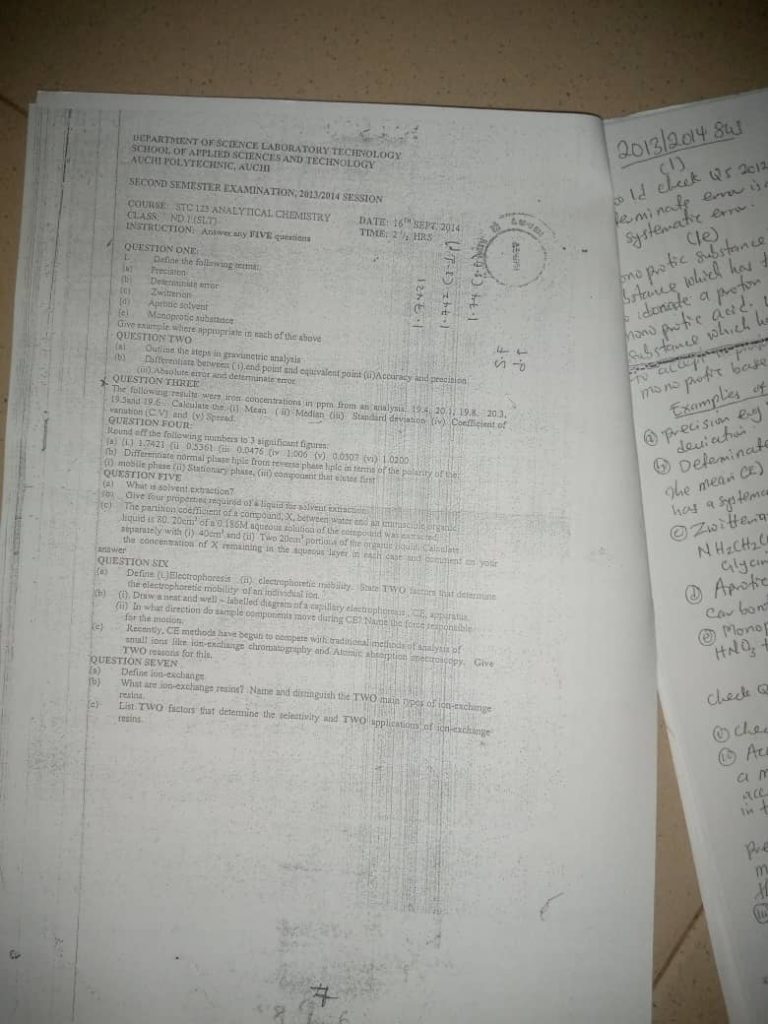 DEPARTMENT OF SCIENCE LABORATORY TECHNOLOGY
SCHOOL OF APPLIED SCIENCES AND TECHNOLOGY
AUCHI POLYTECHNIC, AUCHI
SECOND SEMESTER EXAMINATION, 2013/2014 SESSION
COURSE: STC 123 ANALYTICAL CHEMISTRY DATE: 16TH SEPT. 2014
CLASS: ND I (SLT) TIME: 2 ½ HRS
INSTRUCTION: Answer any FIVE questions
QUESTION ONE:
1. Define the following terms:
(a) Precision
(b) Determinate error
(c) Zwitterion
(d) Aprotic solvent
(e) Monoprotic substance
Give example where appropriate in each of the above
QUESTION TWO
(a) Outline the steps in gravimetric analysis
(b) Differentiate between (i) end point and equivalent point (ii) Accuracy and precision
(iii) Absolute error and determinate error
QUESTION THREE
The following results were iron concentrations in ppm from an analysis: 19.4, 20.1, 19.8, 20.3,
19.5and 19.6... Calculate the (i) Mean (ii) Median (iii) Standard deviation (iv) Coefficient of
variation (C.V) and (v) Spread.
QUESTION FOUR:
Round off the following numbers to 3 significant figures:
(a) (i.) 1.7421 (ii 0.5361 (iii 0.0476 (iv 1.006 (v) 0.0307 (vi) 1.0200
(b) Differentiate normal phase hplc from reverse phase hplc in terms of the polarity of the:
(i) mobile phase (ii) Stationary phase, (iii) component that elutes first
QUESTION FIVE
(a) What is solvent extraction?
(b) Give four properties required of a liquid for solvent extraction
(c) The partition coefficient of a compound, X, between water and an immiscible organic
liquid is 80. 20cm³ of a 0.186M aqueous solution of the compound was extracted
separately with (i) 40cm³ and (ii) Two 20cm³ portions of the organic liquid. Calculate
the concentration of X remaining in the aqueous layer in each case and comment on your
answer
QUESTION SIX
(a) Define (i.)Electrophoresis (ii) electrophoretic mobility. State TWO factors that determine
the electrophoretic mobility of an individual ion.
(b) (i). Draw a neat and well – labelled diagram of a capillary electrophoresis, CE, apparatus.
(ii) In what direction do sample components move during CE? Name the force responsible
for the motion.
(c) Recently, CE methods have begun to compete with traditional methods of analysis of
small ions like ion-exchange chromatography and Atomic absorption spectroscopy. Give
TWO reasons for this.
QUESTION SEVEN
(a) Define ion-exchange
(b) What are ion-exchange resins? Name and distinguish the TWO main types of ion-exchange
resins.
(c) List TWO factors that determine the selectivity and TWO applications of ion-exchange
resins.
2013/2014
(1)
check Q5 2012
error is
systematic error.
(1e)
substance
which has
donate a proton
protic acid.
substance which
proton
mono protic base
Examples of
(a) precision eg
deviation
(b) Determinate
The mean
has a
(c) Zwitterion
NH2CH2
(d) Aprotic
Carbon
(e) Monop
HNO3
check Q
in